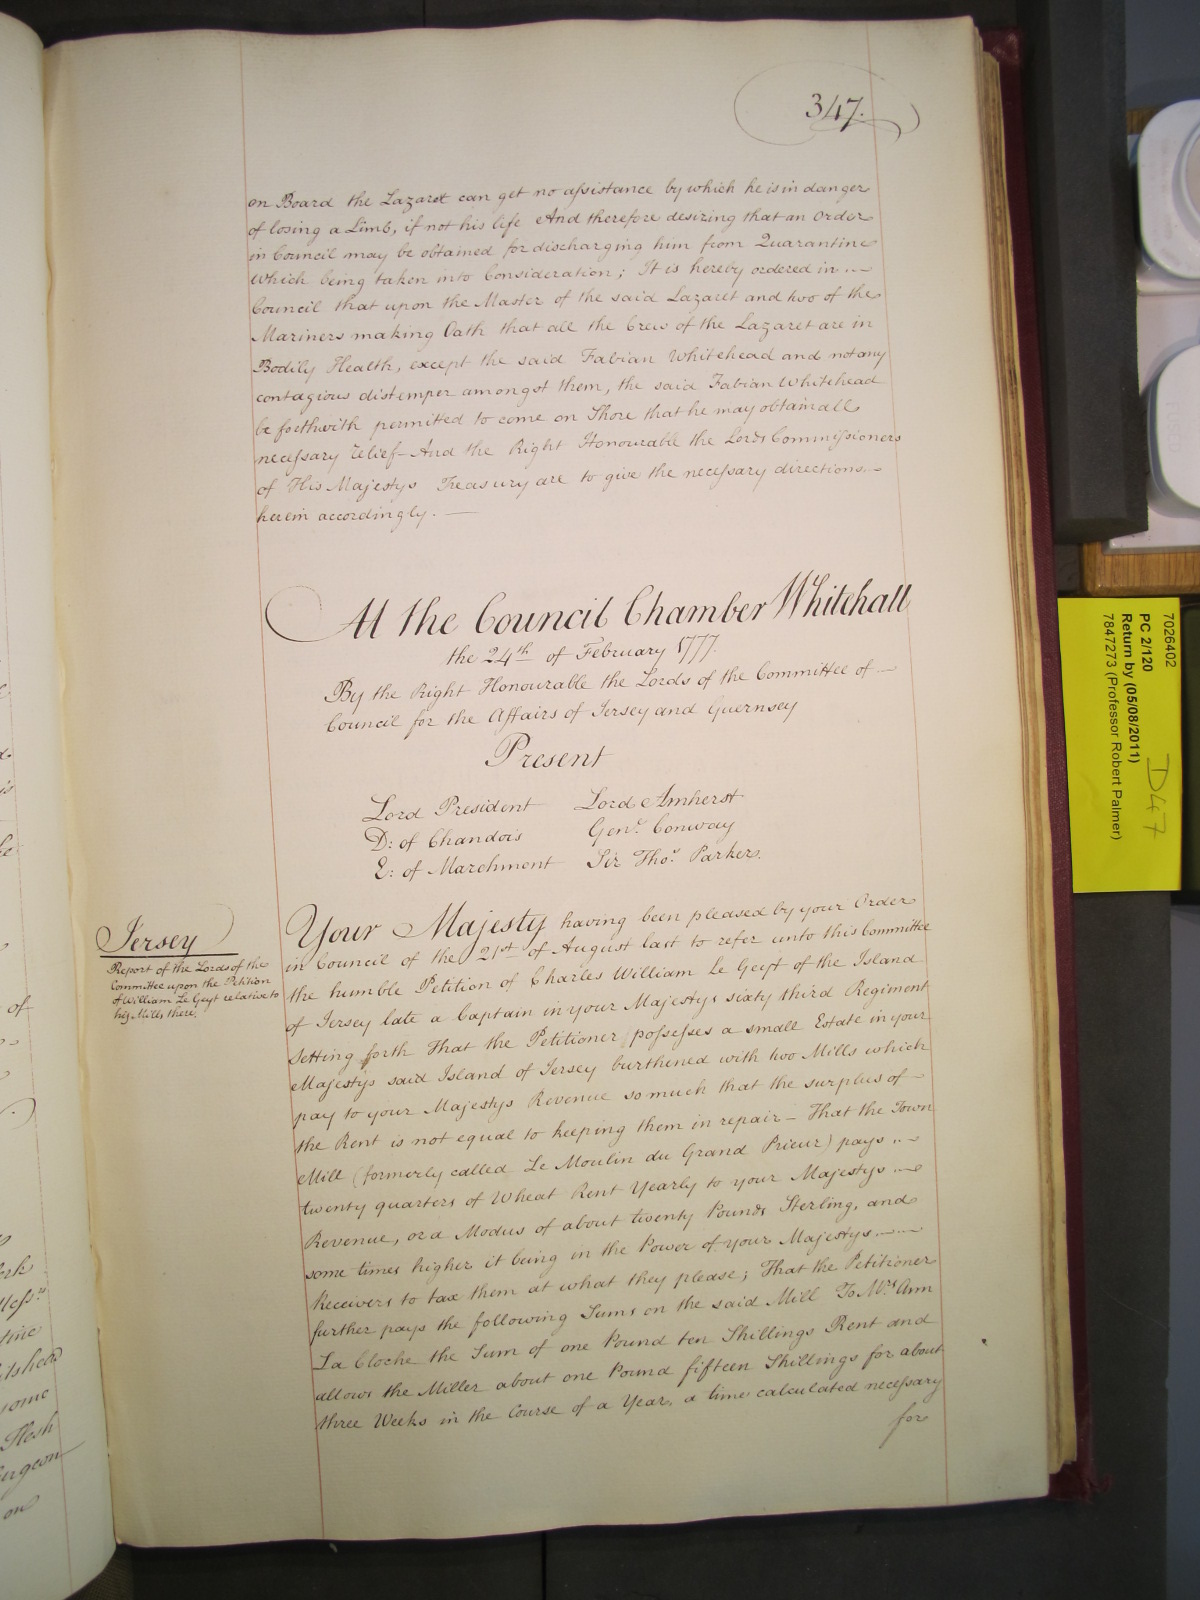 347.
on Board the Lazaret can get no assistance by which he is in danger
of losing a Limb, if not his life And therefore desiring that an Order
in Council may be obtained for discharging him from Quarantine
Which being taken into Consideration; It is hereby ordered in
Council that upon the Master of the said Lazaret and two of the
Mariners making Oath that all the Crew of the Lazaret are in
Bodily Health, except the said Fabian Whitehead and not any
contagious distemper amongst them, the said Fabian Whitehead
be forthwith permitted to come on Shore that he may obtain all
necessary relief - And the Right Honourable the Lords Commissioners
of His Majestys Treasury are to give the necessary directions
herein accordingly. —
At the Council Chamber Whitehall
the 24th of February 1777.
By the Right Honourable the Lords of the Committee of
Council for the Affairs of Jersey and Guernsey
Present
Lord President Lord Amherst
D: of Chandois Genl. Conway
E: of Marchment Sir Thos. Parker.
Jersey
Report of the Lords of the
Committee upon the Petition
of William Le Geyt relative to
his Mills there.
Your Majesty having been pleased by your Order
in Council of the 21st of August last to refer unto this Committee
the humble Petition of Charles William Le Geyt of the Island
of Jersey late a Captain in your Majestys sixty third Regiment
Setting forth That the Petitioner possesses a small Estate in your
Majestys said Island of Jersey burthened with two Mills which
pay to your Majestys Revenue so much that the surplus of
the Rent is not equal to keeping them in repair - That the Town
Mill (formerly called Le Moulin du Grand Prieur) pays
twenty quarters of Wheat Rent Yearly to your Majestys
Revenue, or a Modus of about twenty Pounds Sterling, and
some times higher it being in the Power of your Majestys
Receivers to tax them at what they please; That the Petitioner
further pays the following Sums on the said Mill To Mrs. Ann
La Cloche the Sum of one Pound ten Shillings Rent and
allows the Miller about one Pound fifteen Shillings for about
three Weeks in the Course of a Year, a time calculated necessary
for
7026402
PC 2/120
Return by (05/08/2011)
7847273 (Professor Robert Palmer)
D47